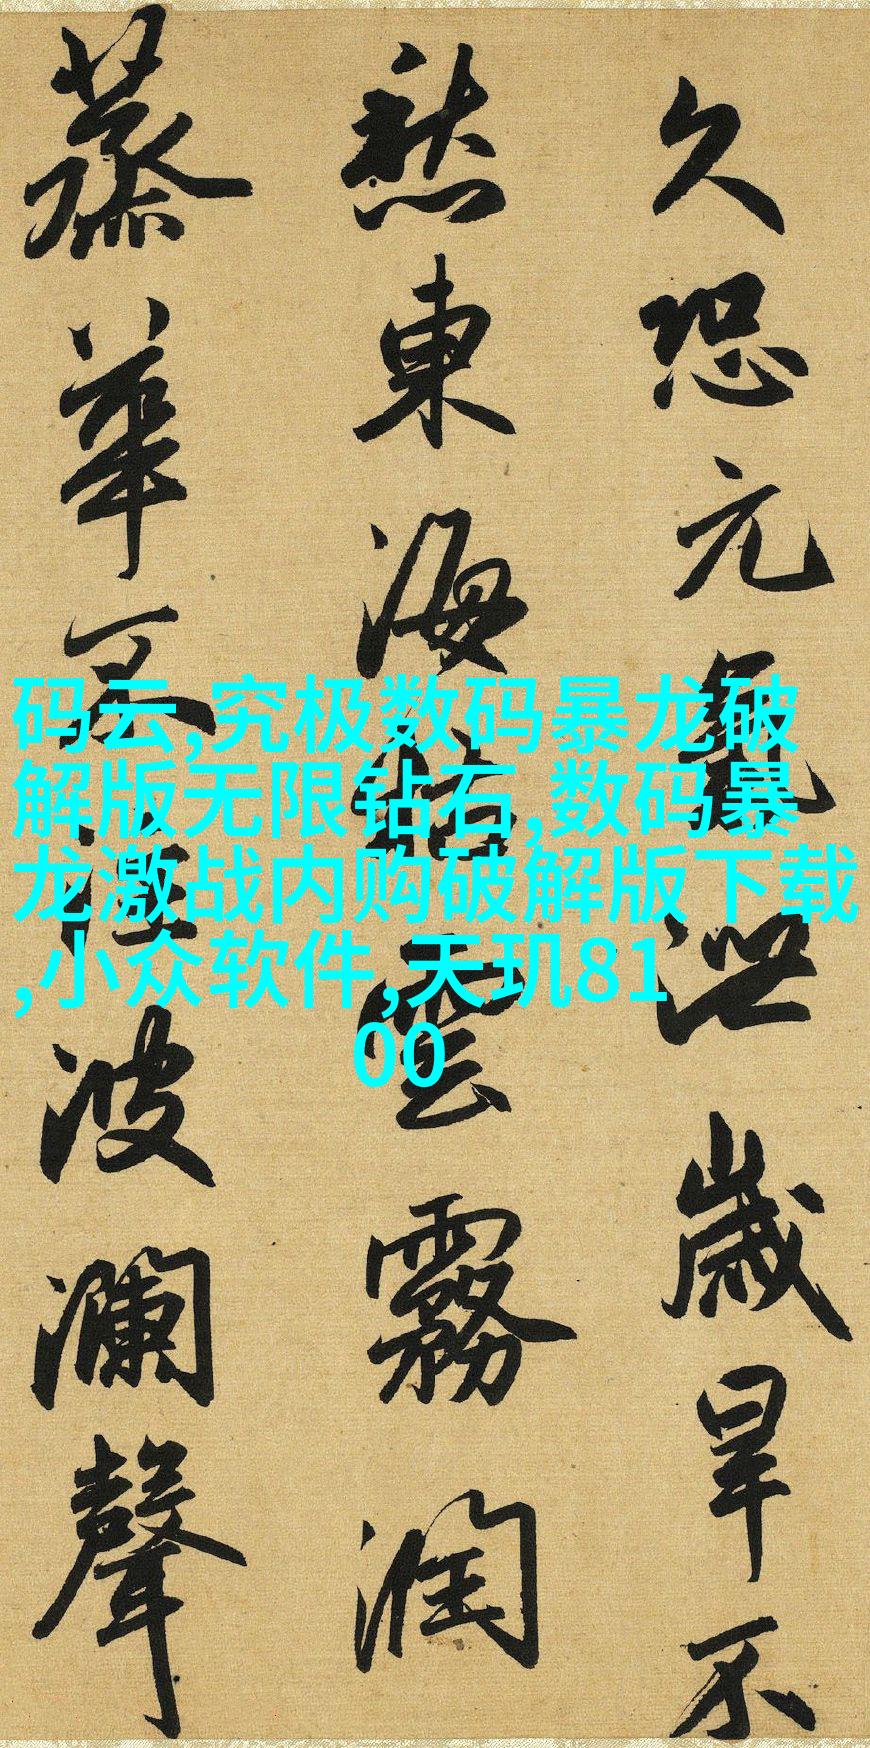 久恐元氣泄歲旱不
愁東海枯雲霧潤
蒸華不注波瀾聲
码云,究极数码暴龙破
解版无限钻石,数码暴
龙激战内购破解版下载
,小众软件,天玑81
00